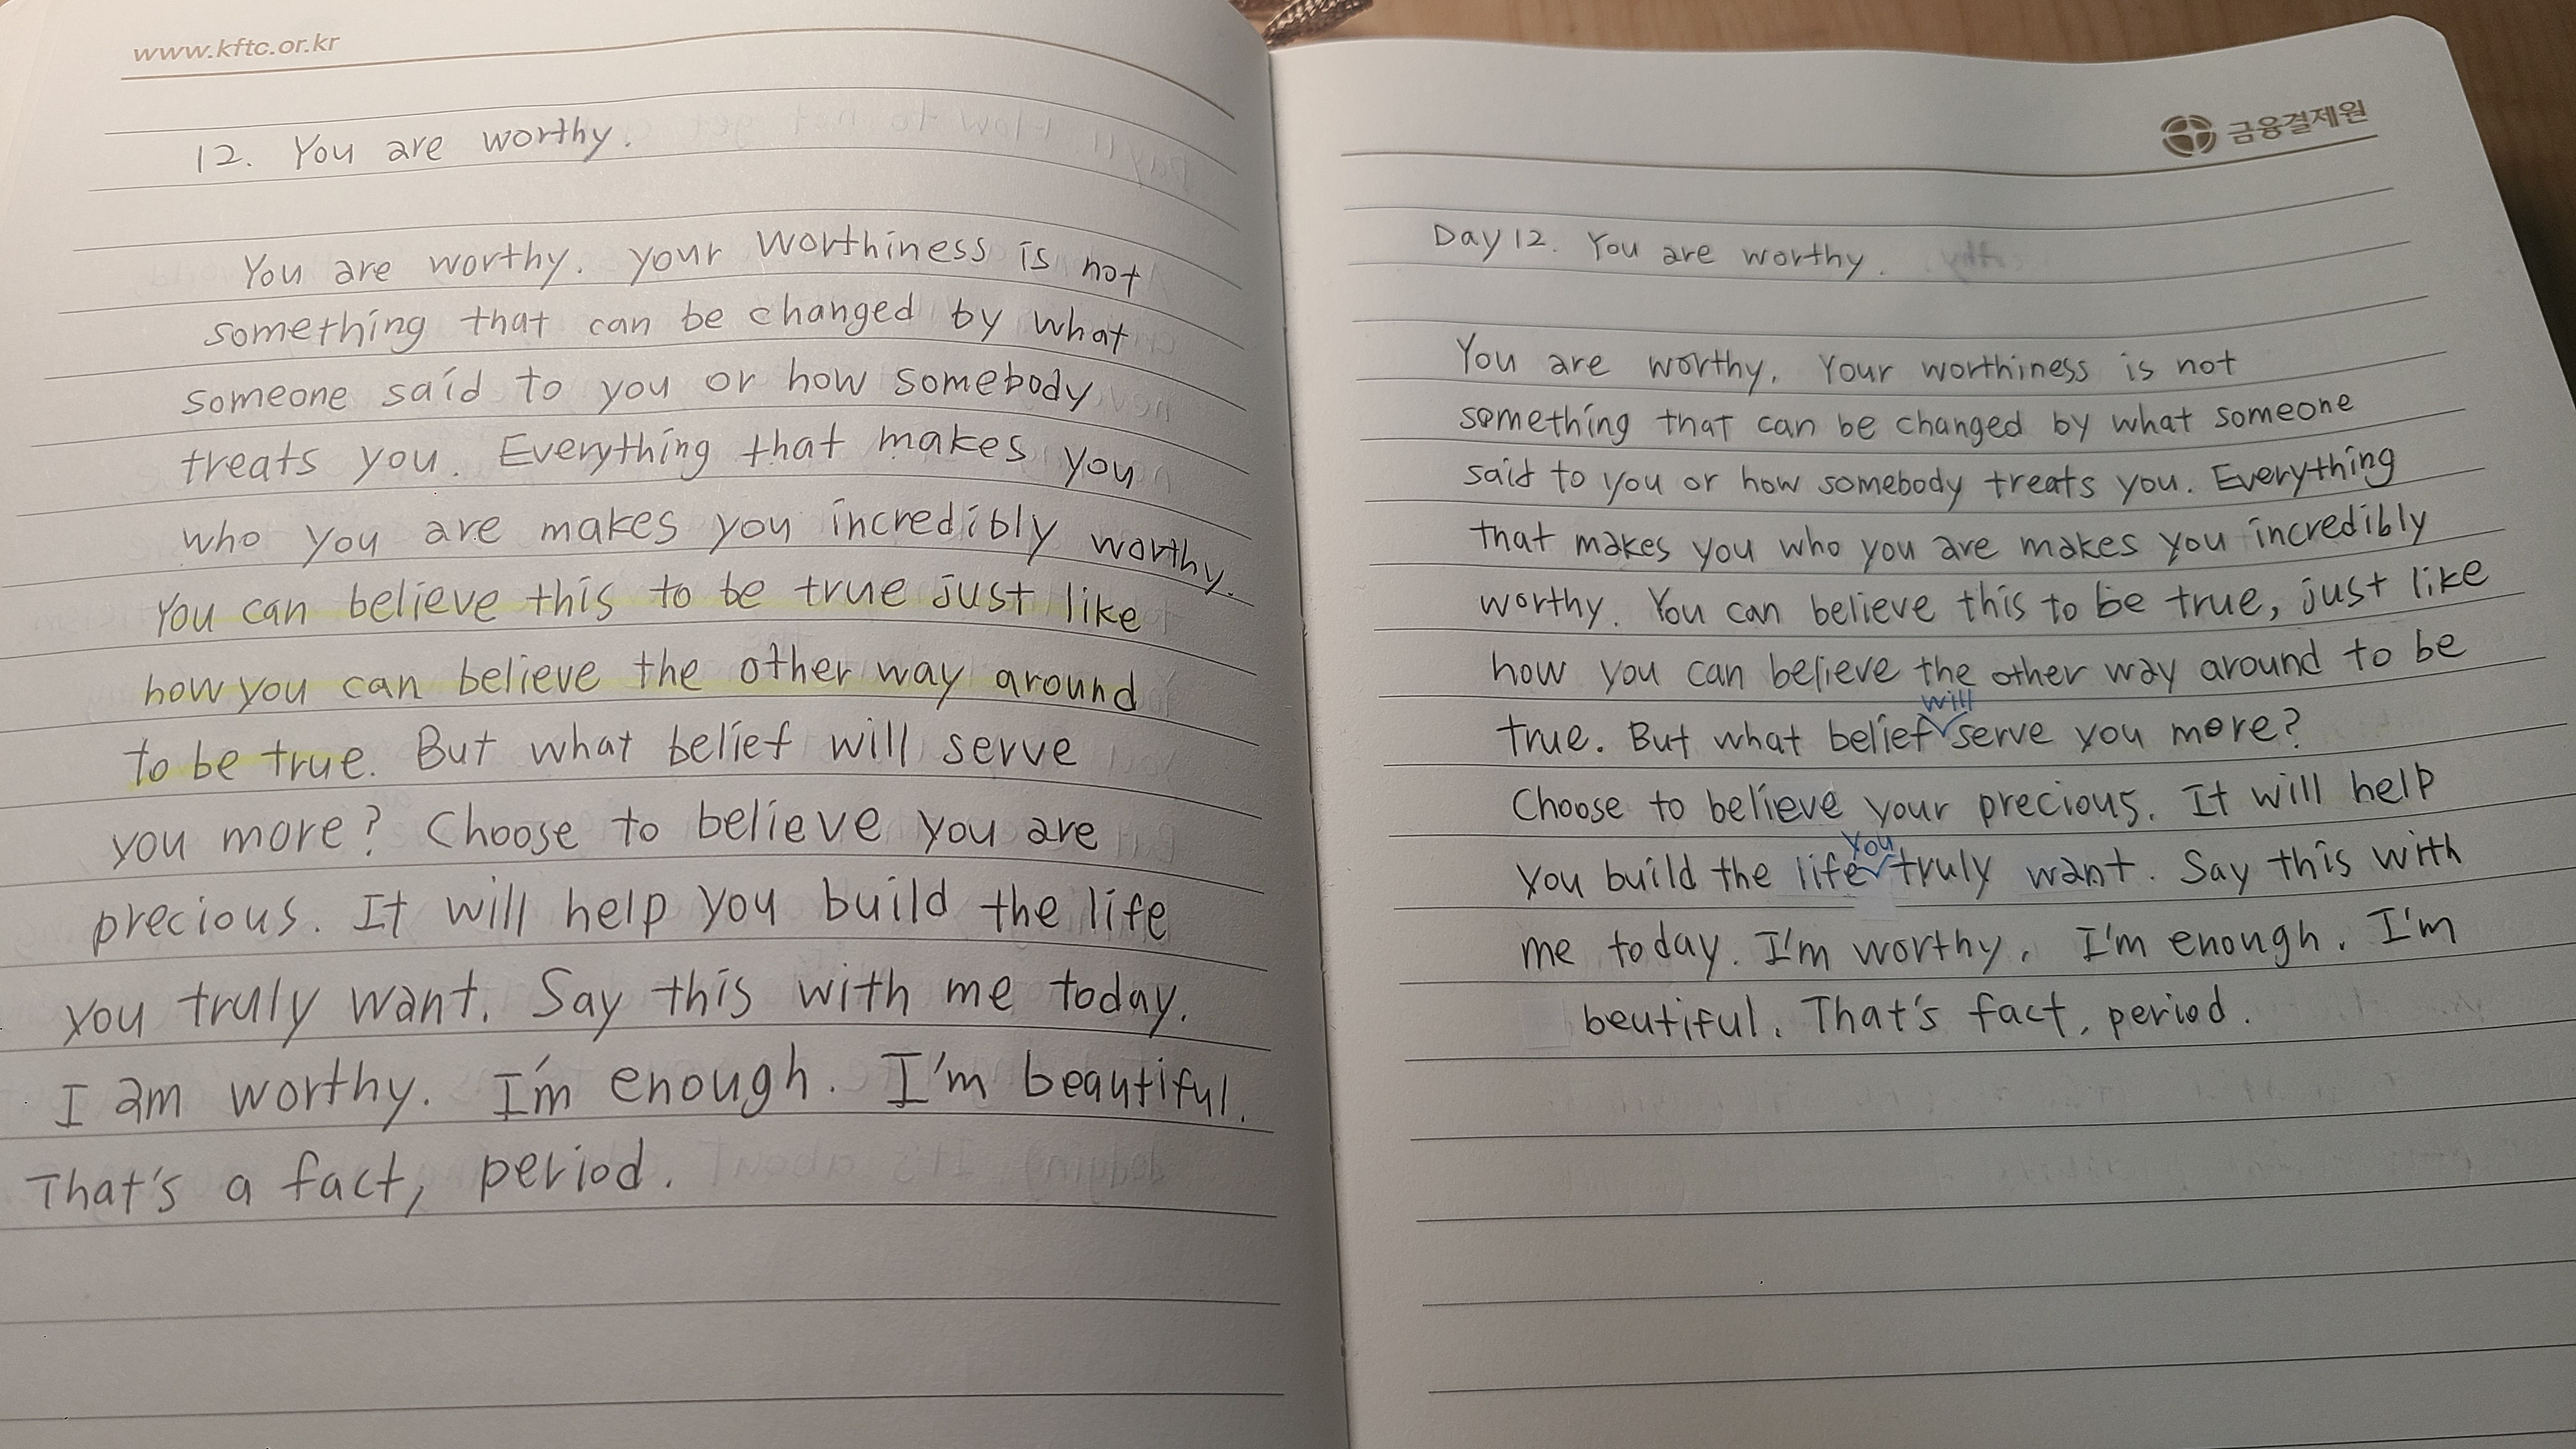 www.kftc.or.kr
12. You are worthy.
You are worthy. your worthiness is not
something that can be changed by what
someone said to you or how somebody
treats you. Everything that makes you
who you are makes you incredibly worthy.
You can believe this to be true just like
how you can believe the other way around
to be true. But what belief will serve
you more? Choose to believe you are
precious. It will help you build the life
you truly want. Say this with me today.
I am worthy. I'm enough. I'm beautiful.
That's a fact, period.
금융결제원
Day 12. You are worthy.
You are worthy. Your worthiness is not
something that can be changed by what someone
said to you or how somebody treats you. Everything
that makes you who you are makes you incredibly
worthy. You can believe this to be true, just like
how you can believe the other way around to be
will
true. But what belief serve you more?
Choose to believe your precious. It will help
you
you build the life truly want. Say this with
me today. I'm worthy. I'm enough. I'm
beutiful. That's fact, period.